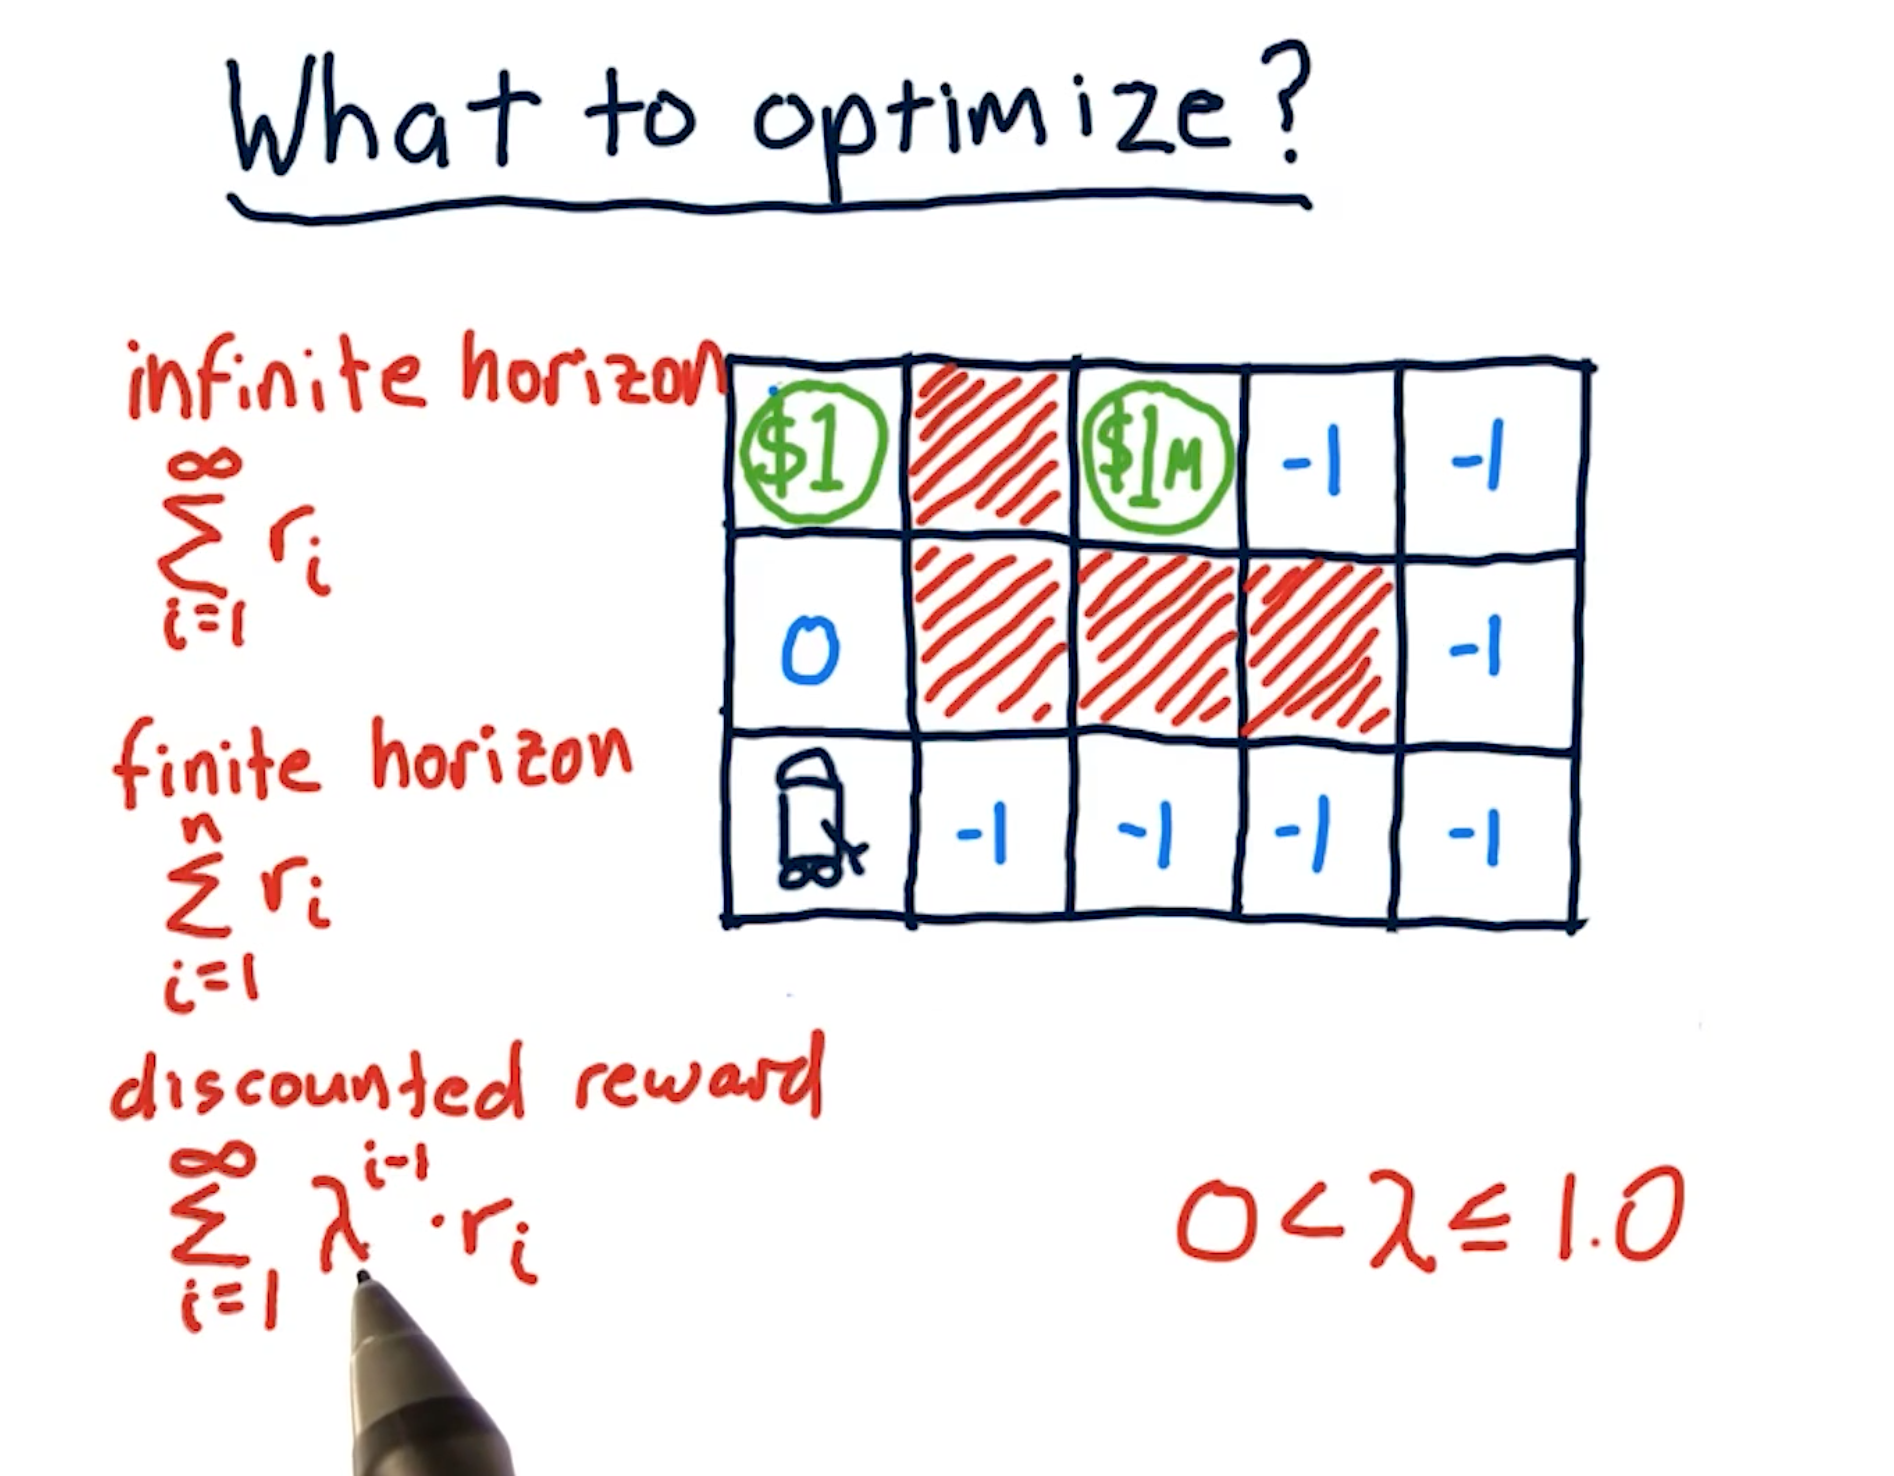 What to optimize?
infinite horizon
∞
Σ rᵢ
i=1
finite horizon
n
Σ rᵢ
i=1
discounted reward
∞
Σ λ^(i-1) · rᵢ
i=1
$1 $1M -1 -1
0 -1
-1 -1 -1 -1
0 < λ ≤ 1.0